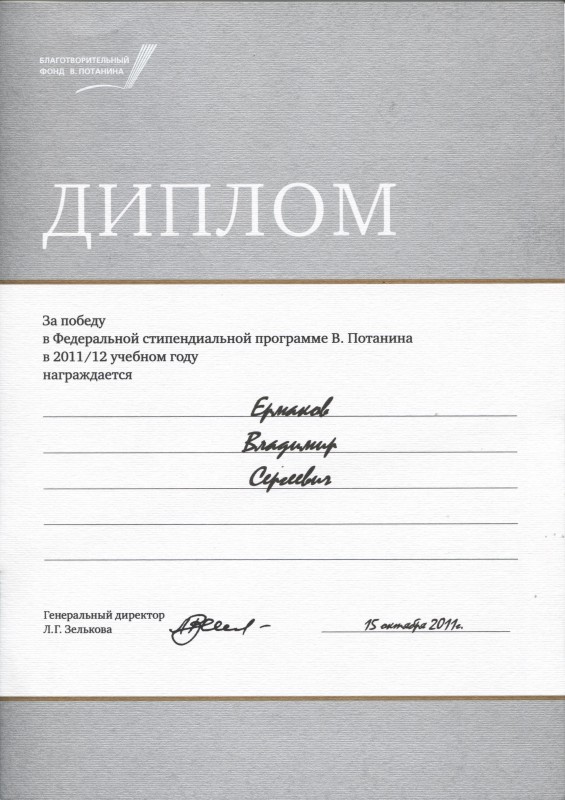 БЛАГОТВОРИТЕЛЬНЫЙ
ФОНД В. ПОТАНИНА
ДИПЛОМ
За победу
в Федеральной стипендиальной программе В. Потанина
в 2011/12 учебном году
награждается
Ермаков
Владимир
Сергеевич
Генеральный директор
Л.Г. Зелькова
15 октября 2011г.